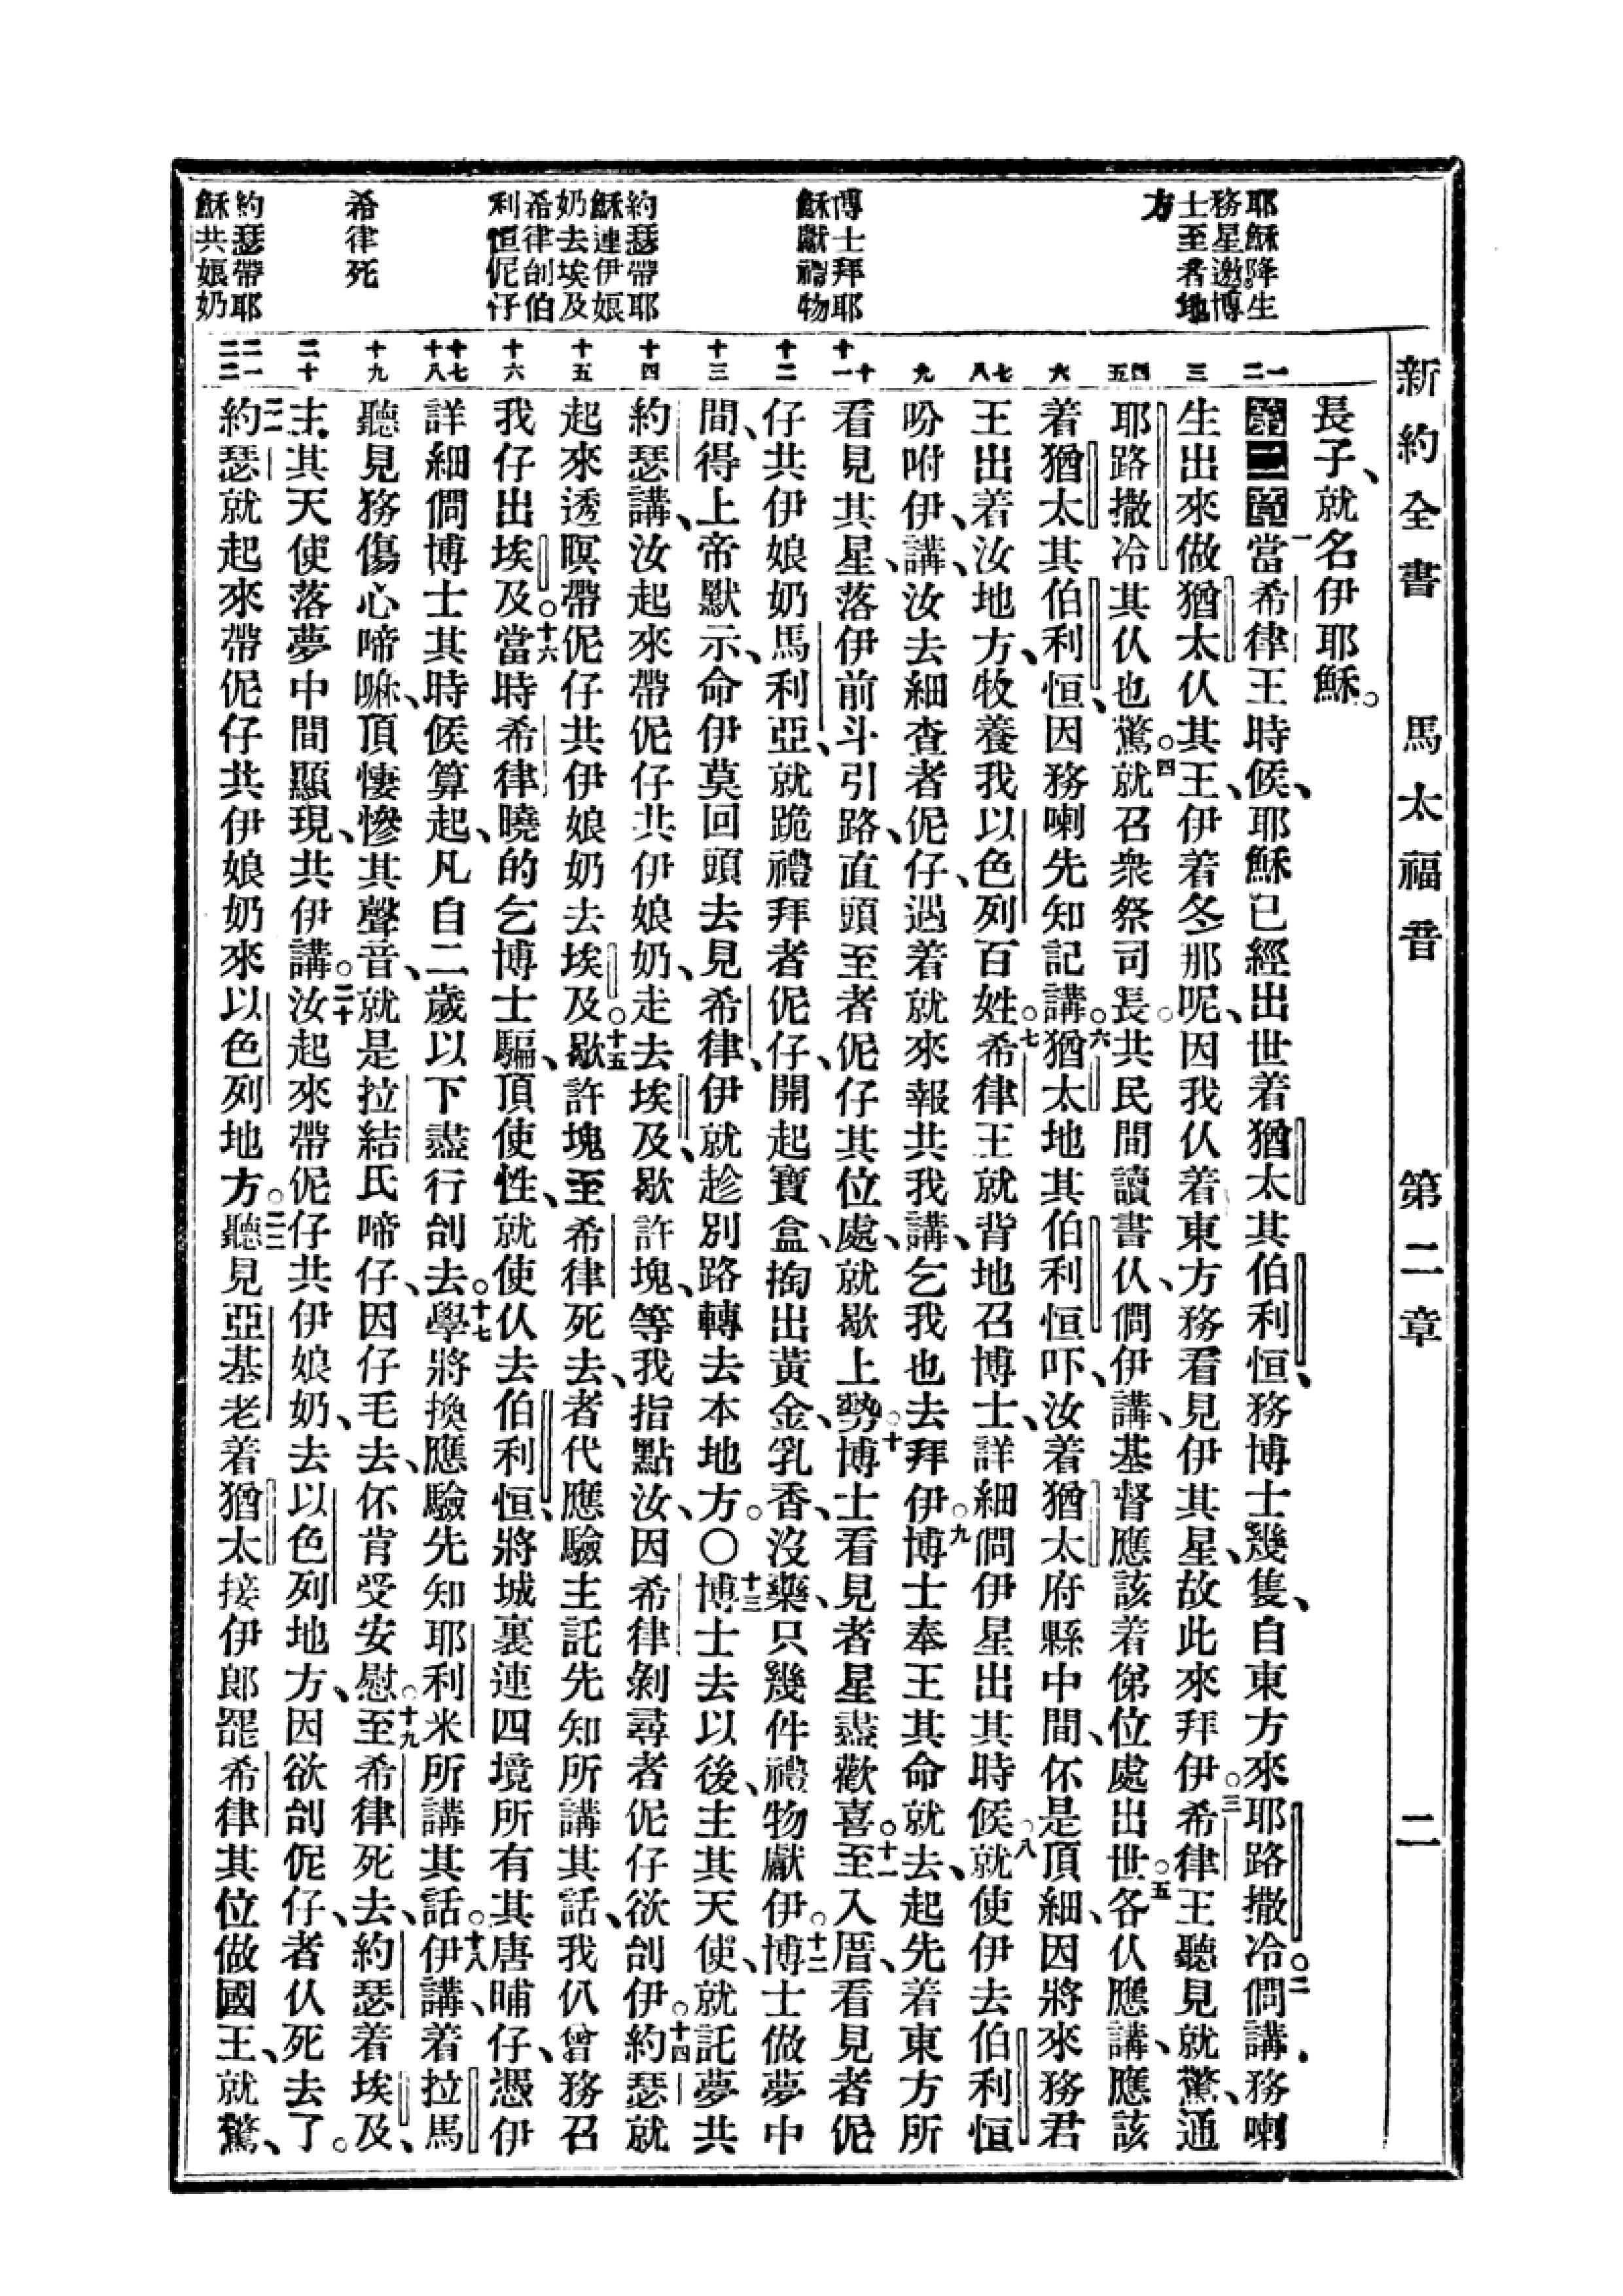 新約全書　馬太福音　第二章　二
耶穌降生
務星邀博
士至者地
方
博士拜耶
穌獻禮物
約瑟帶耶
穌連伊娘
奶去埃及
希律刣伯
利恒伲仔
希律死
約瑟帶耶
穌共娘奶
一
二
三
四
五
六
七
八
九
十
十一
十二
十三
十四
十五
十六
十七
十八
十九
二十
二一
二二
長子、就名伊耶穌。
第二章一當希律王時候、耶穌已經出世着猶太其伯利恒、務博士幾隻、自東方來耶路撒冷。二問講、務喇
生出來做猶太仫其王、伊着冬那呢、因我仫着東方務看見伊其星、故此來拜伊。三希律王聽見就驚、通
耶路撒冷其仫也驚。四就召衆祭司長。共民間讀書仫、問伊講、基督應該着俤位處出世。五各仫應講、應該
着猶太其伯利恒、因務喇先知記講。六猶太地其伯利恒吓、汝着猶太府縣中間、伓是頂細、因將來務君
王出着汝地方、牧養我以色列百姓。七希律王就背地召博士、詳細問伊星出其時候。八就使伊去伯利恒
吩咐伊、講、汝去細查者伲仔、遇着就來報共我講、乞我也去拜伊。九博士奉王其命就去、起先着東方所
看見其星、落伊前斗引路、直頭至者伲仔其位處、就歇上勢。十博士看見者星盡歡喜。十一至入厝、看見者伲
仔共伊娘奶馬利亞、就跪禮拜者伲仔、開起寶盒、掏出黃金、乳香、沒藥、只幾件禮物獻伊。十二博士做夢中
間、得上帝默示、命伊莫回頭去見希律、伊就趁別路轉去本地方。〇十三博士去以後、主其天使、就託夢共
約瑟講、汝起來帶伲仔共伊娘奶、走去埃及、歇許塊、等我指點汝、因希律剝尋者伲仔、欲刣伊。十四約瑟就
起來透暝帶伲仔共伊娘奶去埃及。十五歇許塊至希律死去、者代應驗主託先知所講其話、我仈曾務召
我仔出埃及。十六當時希律曉的乞博士騙、頂使性、就使仫去伯利恒、將城裏連四境所有其唐晡仔、憑伊
詳細問博士其時候算起、凡自二歲以下盡行刣去。十七學將換應驗先知耶利米所講其話。十八伊講、着拉馬
聽見務傷心啼嘛、頂悽慘其聲音、就是拉結氏啼仔、因仔毛去、伓肯受安慰。十九至希律死去、約瑟着埃及、
主其天使落夢中間顯現、共伊講。二十汝起來帶伲仔共伊娘奶、去以色列地方、因欲刣伲仔、者仫死去了。
二一約瑟就起來帶伲仔共伊娘奶來以色列地方。二二聽見亞基老着猶太接伊郎罷希律其位做國王、就驚、